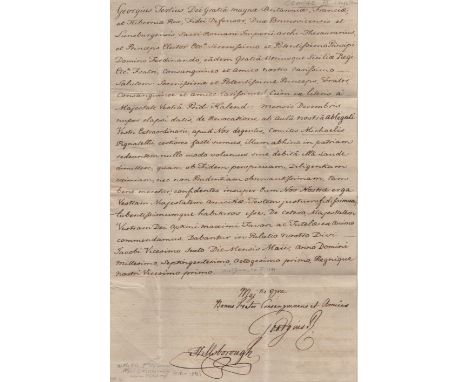 Georgius Tertius Dei Gratiâ magnæ Britanniæ, Franciæ,
et Hiberniæ Rex, Fidei Defensor, Dux Brunsvicensis et
Luneburgensis Sacri Romani Imperii Archi Thesaurarius,
et Princeps Elector &c. Serenissimo et Potentissimo Principi
Domino Ferdinando eâdem Gratiâ Utriusque Siciliæ Regi
&c. Fratri, Consanguineo et Amico nostro carissimo
Salutem Serenissime et Potentissime Princeps, Frater
Consanguinee et Amice carissime! Cùm ex literis à
Majestate Vestrâ Kalend. mensis Decembris
nuper elapsi datis, de Revocatione ab Aulâ nostrâ Ablegati
Vestri Extraordinarii, apud Nos degentis, Comitis Michaelis
Pignatelli certiores facti simus, illum abhinc in patriam
redeuntem nullo modo volumus sine debitâ Illi Laude
dimittere, quam ob Fidem perspicuam, Diligentiam
eximiam, nec non Prudentiam
bene meritus; confidentes insuper Eum Nos Nostræ ergà
Vestram Majestatem amicitiæ Testem
lubentissimumque habituros esse. De cætero Majestatem
Vestram Dei Optimi maximi Favori ac Tutelæ ex animo
commendamus. Dabantur in Palatio nostro Divi
Jacobi Vicesimo Sexto Die Mensis Maii, anno Domini
Millesimo, Septingentesimo Octogesimo primo, Regnique
nostri Vicesimo primo.
Majtis Vræ
Bonus Frater Consanguineus et Amicus
Georgius R.
Hillsborough